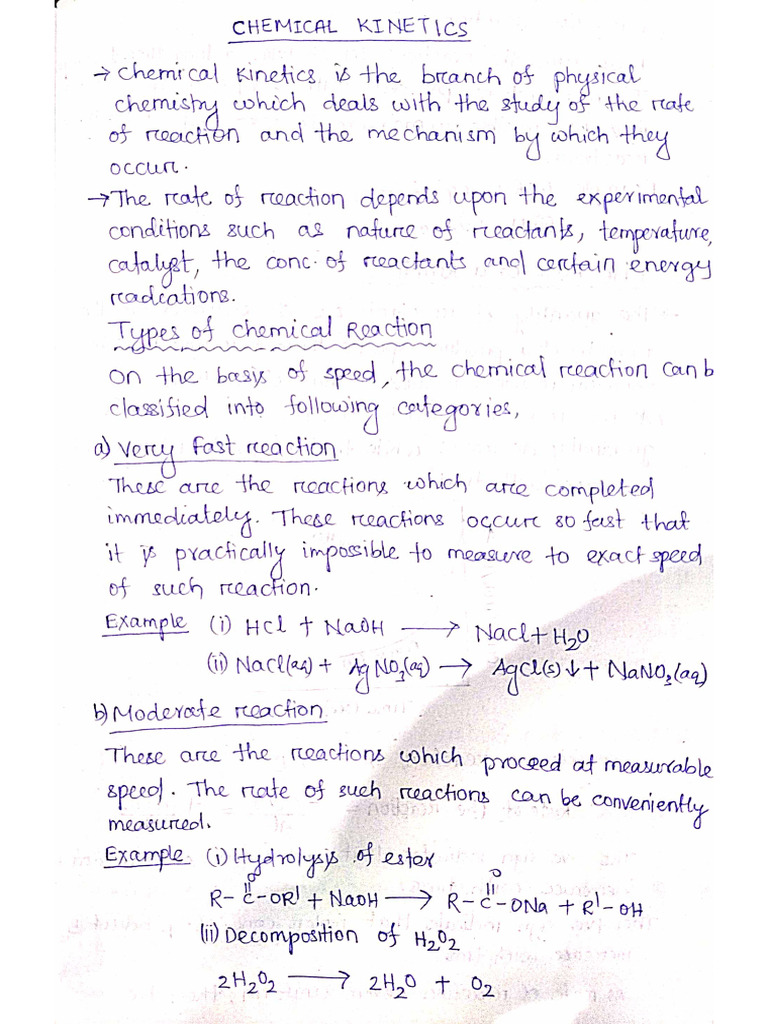 CHEMICAL KINETICS
→ Chemical Kinetics is the branch of physical
chemistry which deals with the study of the rate
of reaction and the mechanism by which they
occur.
→ The rate of reaction depends upon the experimental
conditions such as nature of reactants, temperature,
catalyst, the conc. of reactants and certain energy
radiations.
Types of Chemical Reaction
On the basis of speed, the chemical reaction can b
classified into following categories,
a) Very fast reaction
These are the reactions which are completed
immediately. These reactions occur so fast that
it is practically impossible to measure to exact speed
of such reaction.
Example (i) HCl + NaOH ⟶ NaCl + H₂O
(ii) NaCl(aq) + AgNO₃(aq) ⟶ AgCl(s)↓ + NaNO₃(aq)
b) Moderate reaction
These are the reactions which proceed at measurable
speed. The rate of such reactions can be conveniently
measured.
Example (i) Hydrolysis of ester
O O
R-C-OR' + NaOH ⟶ R-C-ONa + R'-OH
(ii) Decomposition of H₂O₂
2H₂O₂ ⟶ 2H₂O + O₂